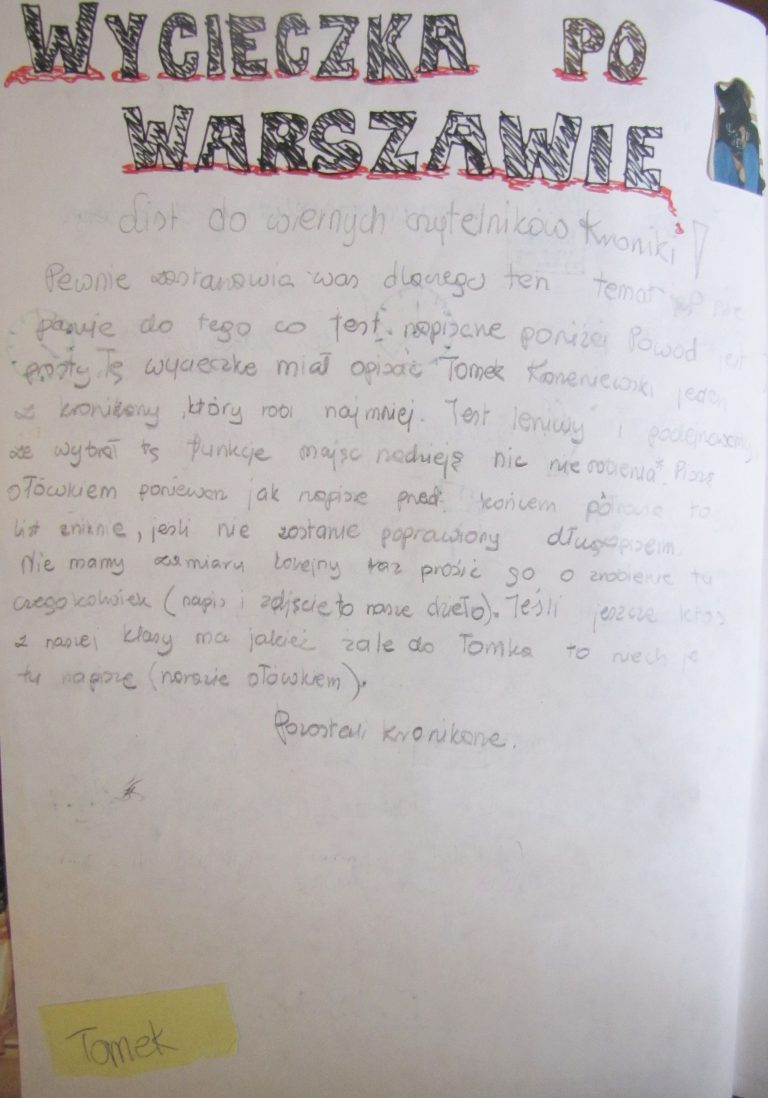 WYCIECZKA PO
WARSZAWIE
List do wiernych czytelników kroniki!
Pewnie zastanawia was dlaczego ten temat nie
pasuje do tego co jest napisane poniżej Powód jest
prosty Tę wycieczke miał opisać Tomek jeden
z kronikarzy, który robi najmniej. Jest leniwy i podejrzewamy
że wybrał tę funkcje mając nadzieję nic nie robienia". Piszę
ołówkiem ponieważ jak napisze przed końcem półrocza to
list zniknie, jeśli nie zostanie poprawiony długopisem.
Nie mamy zamiaru kolejny raz prosić go o zrobienie tu
czegokolwiek (napis i zdjęcie to nasze dzieło). Jeśli jeszcze ktoś
z naszej klasy ma jakieś żale do Tomka to niech je
tu napisze (narazie ołówkiem).
Pozostali kronikarze.
Tomek